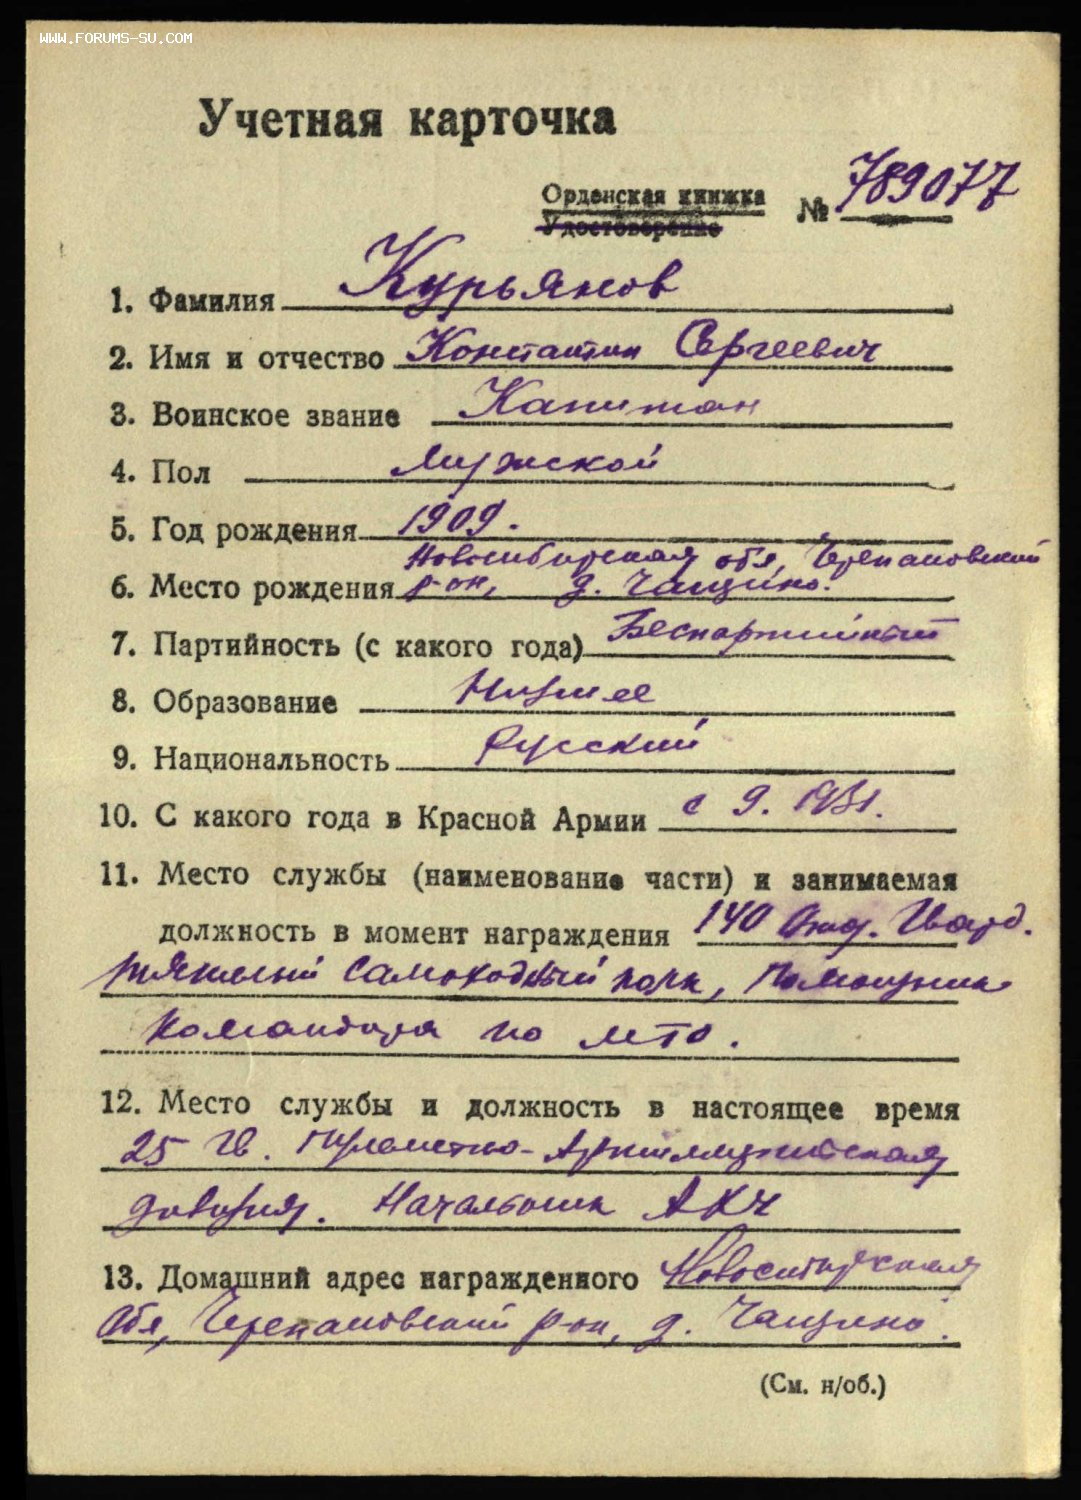 WWW.FORUMS-SU.COM
Учетная карточка
Орденская книжка
Удостоверение
№ 789077
1. Фамилия Курьянов
2. Имя и отчество Константин Сергеевич
3. Воинское звание Капитан
4. Пол Мужской
5. Год рождения 1909.
Новосибирская обл, Черепановский
6. Место рождения р-он, д. Чащино.
7. Партийность (с какого года) Беспартийный
8. Образование Низшее
9. Национальность Русский
10. С какого года в Красной Армии с 9. 1931.
11. Место службы (наименование части) и занимаемая
должность в момент награждения 140 Отд. Гвард.
тяжелый самоходный полк, Помощник
командира по МТО.
12. Место службы и должность в настоящее время
25 Гв. Пулеметно-Артиллерийская
дивизия. Начальник АХЧ
13. Домашний адрес награжденного Новосибирская
обл, Черепановский р-он, д. Чащино.
(См. н/об.)